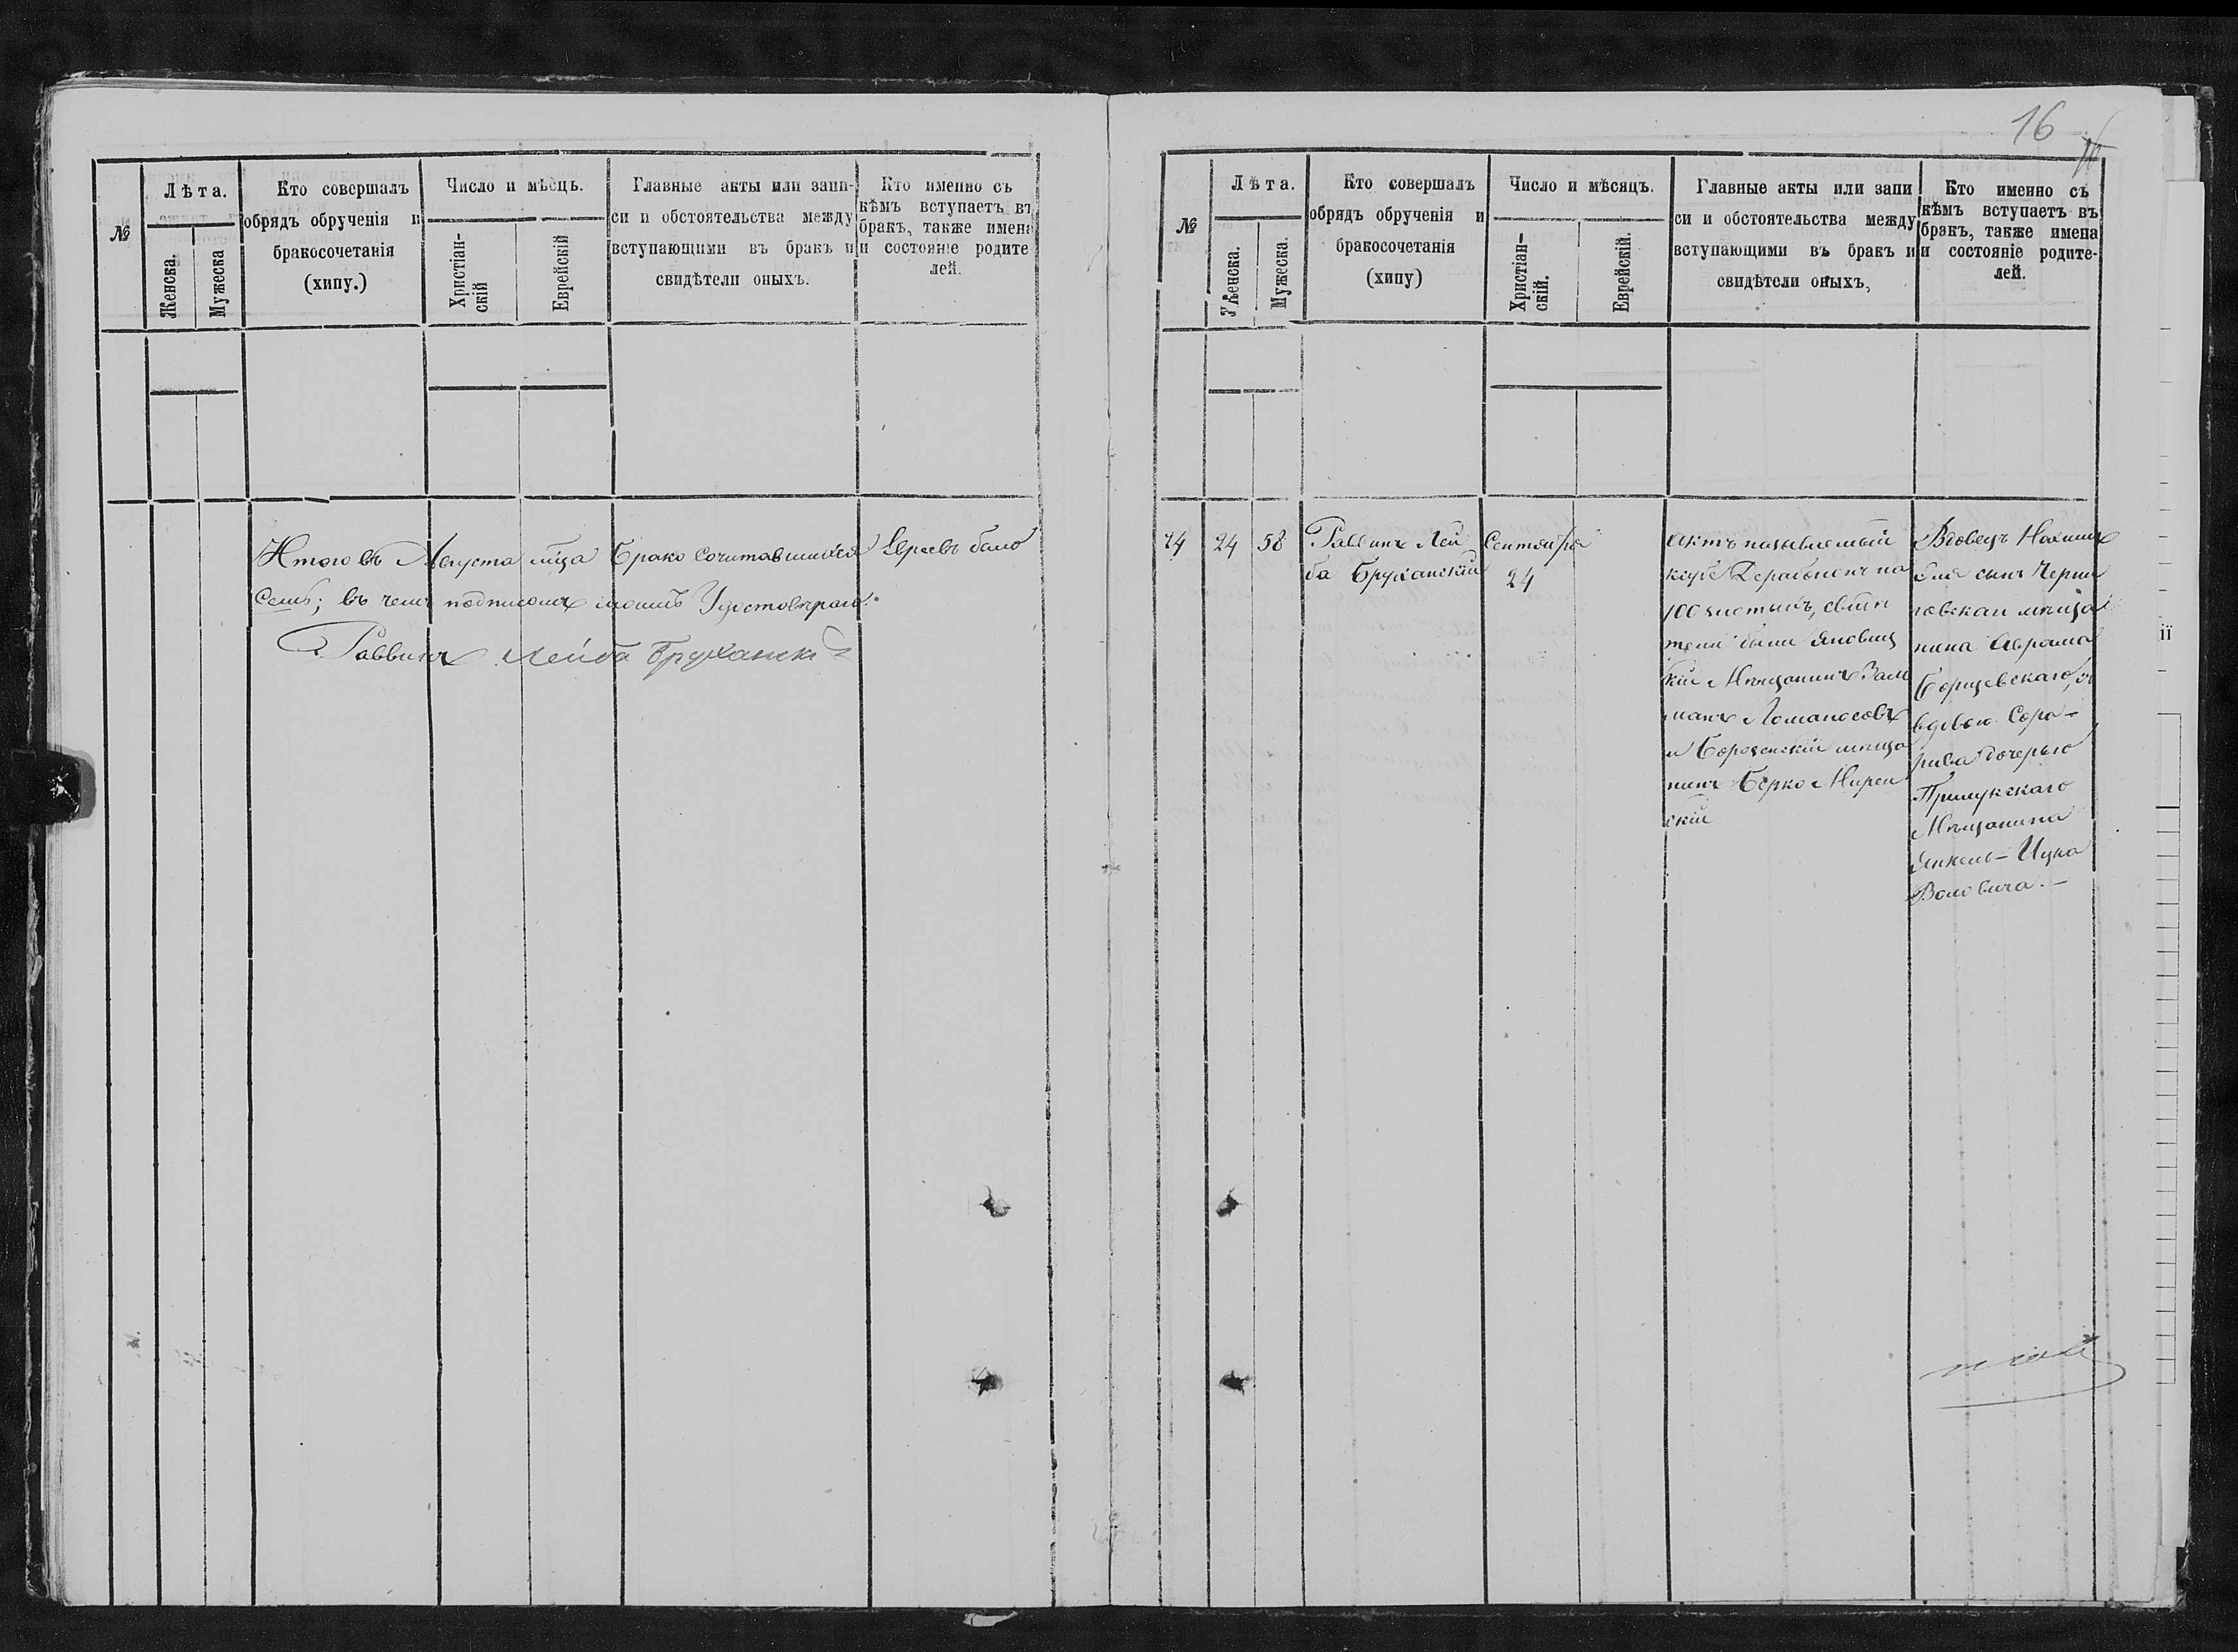 16
№
Лѣта.
Женска.
Мужеска
Кто совершалъ
обрядъ обрученія и
бракосочетанія
(хипу.)
Число и мѣсцъ.
Христіан-
скій
Еврейскій
Главные акты или запи-
си и обстоятельства между
вступающими въ бракъ и
свидѣтели оныхъ.
Кто именно съ
кѣмъ вступаетъ въ
бракъ, также имена
и состояніе родите
лей.
Итого въ Августа мца Брако сочитавшихся Евреевъ было
семь; въ чемъ подписомъ моимъ Удостовѣраю.
Раввинъ Лейба Бруханскій
№
Лѣта.
Женска.
Мужеска.
Кто совершалъ
обрядъ обрученія и
бракосочетанія
(хипу)
Число и мѣсяцъ.
Христіан-
скій.
Еврейскій.
Главные акты или запи
си и обстоятельства между
вступающими въ бракъ и
свидѣтели оныхъ,
Кто именно съ
кѣмъ вступаетъ въ
бракъ, также имена
и состояніе родите-
лей.
24
24
58
Раввинъ Лей
ба Бруханскій
Сентября
24
Актъ называемый
Дерабононъ на
100 злотыхъ, свидѣ
тели были
кій Мѣщанинъ Зал
манъ Ломаносовъ
и Борзенскій мѣща
нинъ Берко Мирен
скій
Вдовецъ Нахимъ
сынъ Черни
говскаи мѣща
нина Аврама
Борщевскаго, съ
вдовою Сора-
рива дочерью
Прилукскаго
Мѣщанина
Янкель-Ицка
Воловича.-